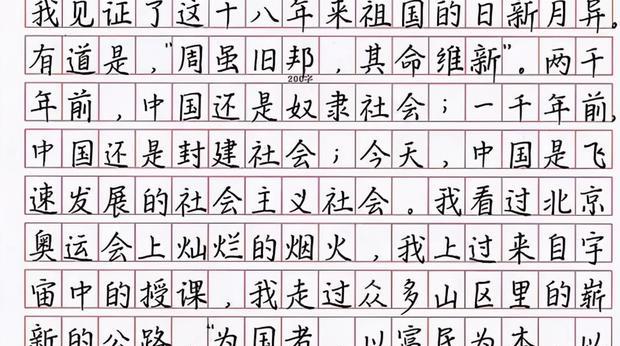 我见证了这十八年来祖国的日新月异。
有道是，"周虽旧邦，其命维新"。两千
200字
年前，中国还是奴隶社会；一千年前，
中国还是封建社会；今天，中国是飞
速发展的社会主义社会。我看过北京
奥运会上灿烂的烟火，我上过来自字
宙中的授课，我走过众多山区里的崭
新的公路。"为国者，以富民为本，以